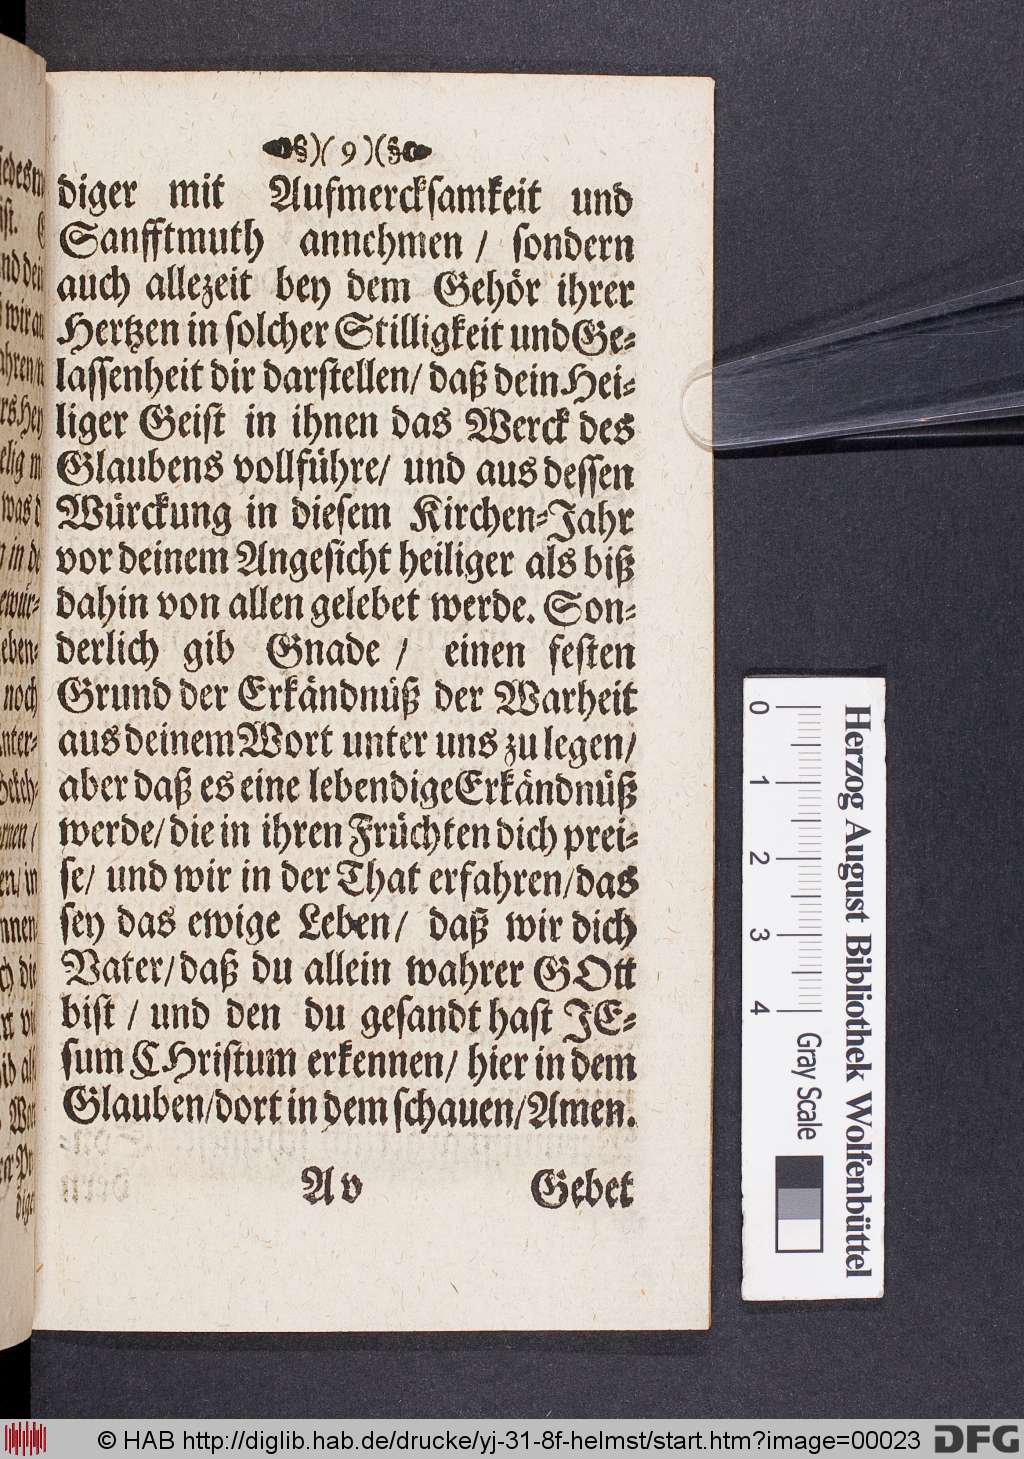 §)( 9 )(§
diger mit Aufmercksamkeit und
Sanfftmuth annehmen / sondern
auch allezeit bey dem Gehör ihrer
Hertzen in solcher Stilligkeit und Ge-
lassenheit dir darstellen/ daß dein Hei-
liger Geist in ihnen das Werck des
Glaubens vollführe/ und aus dessen
Würckung in diesem Kirchen-Jahr
vor deinem Angesicht heiliger als biß
dahin von allen gelebet werde. Son-
derlich gib Gnade / einen festen
Grund der Erkändnüß der Warheit
aus deinem Wort unter uns zu legen/
aber daß es eine lebendige Erkändnüß
werde/ die in ihren Früchten dich prei-
se/ und wir in der That erfahren/das
sey das ewige Leben/ daß wir dich
Vater/ daß du allein wahrer GOtt
bist / und den du gesandt hast JE-
sum CHristum erkennen/ hier in dem
Glauben/dort in dem schauen/Amen.
A v Gebet
0 1 2 3 4 Gray Scale
Herzog August Bibliothek Wolfenbüttel
© HAB http://diglib.hab.de/drucke/yj-31-8f-helmst/start.htm?image=00023
DFG